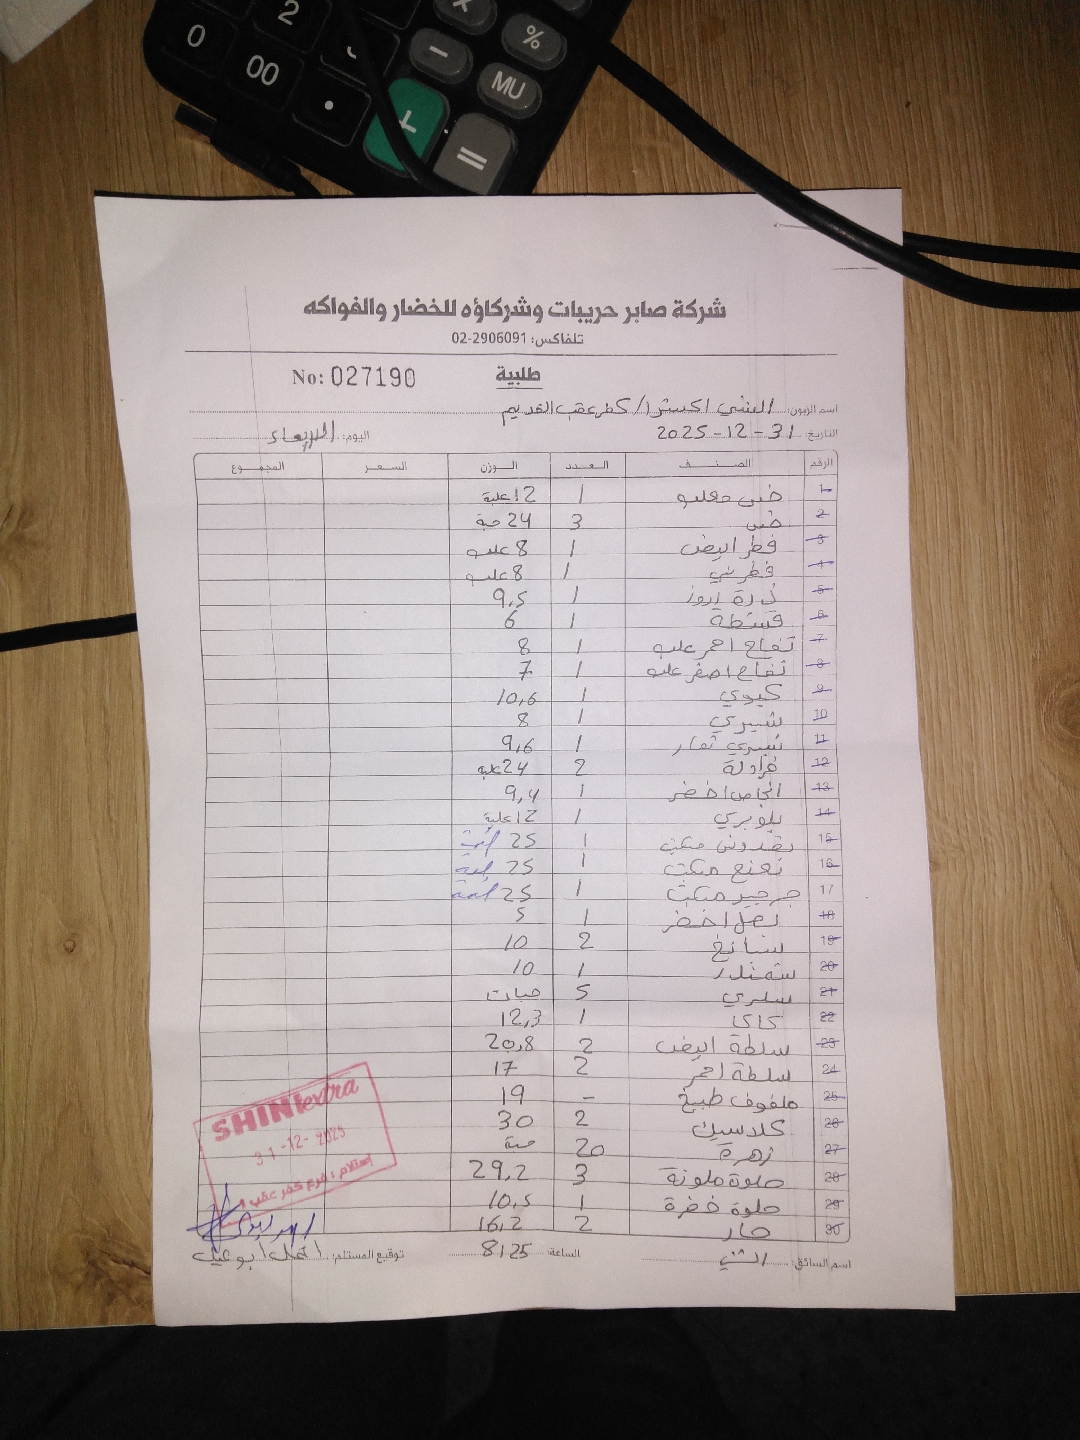 0
2
00
.
×
-
+
%
MU
=
شركة صابر حريبات وشركاؤه للخضار والفواكه
تلفاكس: 02-2906091
No: 027190
طلبية
اسم الزبون: الشني اكسترا / كفر عقب القديم
التاريخ: 31-12-2025 اليوم: الاربعاء
الرقم الصنف العدد الوزن السعر المجموع
1 خس معلب 1 12 علبة
2 خس 3 24 حبة
3 فطر ابيض 1 8 علب
4 فطر بني 1 8 علب
5 1 9,5
6 قشطة 1 6
7 تفاح احمر علب 1 8
8 تفاح اصفر علب 1 7
9 كيوي 1 10,6
10 شيري 1 8
11 شيري 1 9,6
12 فراولة 2 24 علبة
13 اخضر 1 9,4
14 بلوبري 1 12 علبة
15 بقدونس مكتب 1 25
16 نعنع مكتب 1 25
17 جرجير مكتب 1 25
18 بصل اخضر 1 5
19 سبانخ 2 10
20 شمندر 1 10
21 سلري 5 حبات
22 كاكا 1 12,3
23 سلطة ابيض 2 20,8
24 سلطة احمر 2 17
25 ملفوف طبيخ - 19
26 كلاسيك 2 30
27 زهرة 20 حبة
28 حلوة ملونة 3 29,2
29 حلوة خضرة 1 10,5
30 حار 2 16,2
SHINI extra
31-12-2025
إستلام: فرع كفر عقب
اسم السائق: الشني الساعة: 8:25 توقيع المستلم: